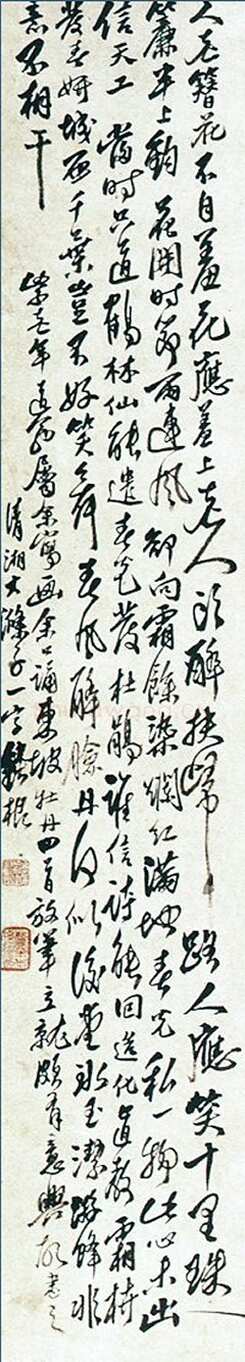 人老簪花不自羞花應羞上老人頭醉扶歸路人應笑十里珠
簾半上鈎花開時節雨連風却向霜餘染爛紅滿地春光私一物此心未出
信天工當時只道鶴林仙能遣春花發杜鵑誰信詩能回造化直教霜枿
發春妍城西千葉豈不好笑舞春風醉臉丹何似後堂冰玉潔游蜂非
意不相干
紫老年道翁屬余寫畫余口誦東坡牡丹四首放筆立就頗有意興故書之
清湘大滌子一字根